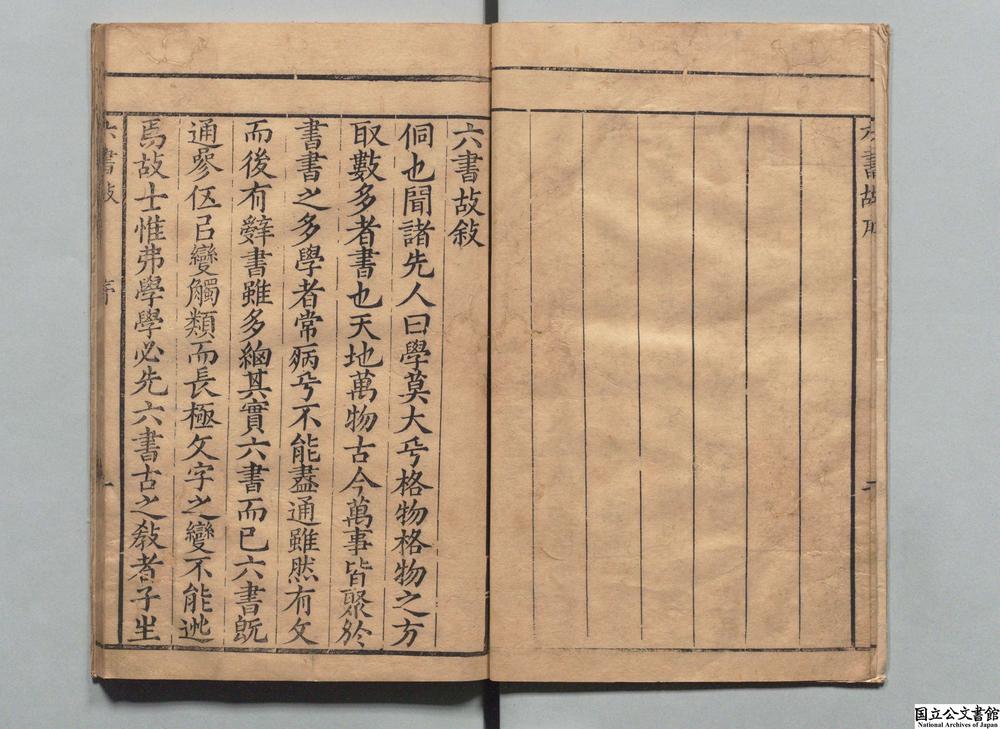 六書故敍
侗也聞諸先人曰學莫大乎格物格物之方
取數多者書也天地萬物古今萬事皆聚於
書書之多學者常病乎不能盡通雖然有文
而後有辭書雖多緫其實六書而已六書旣
通參伍㠯變觸類而長極文字之變不能逃
焉故士惟弗學學必先六書古之敎者子生
六書故
序
一
六書故
一
国立公文書館
National Archives of Japan